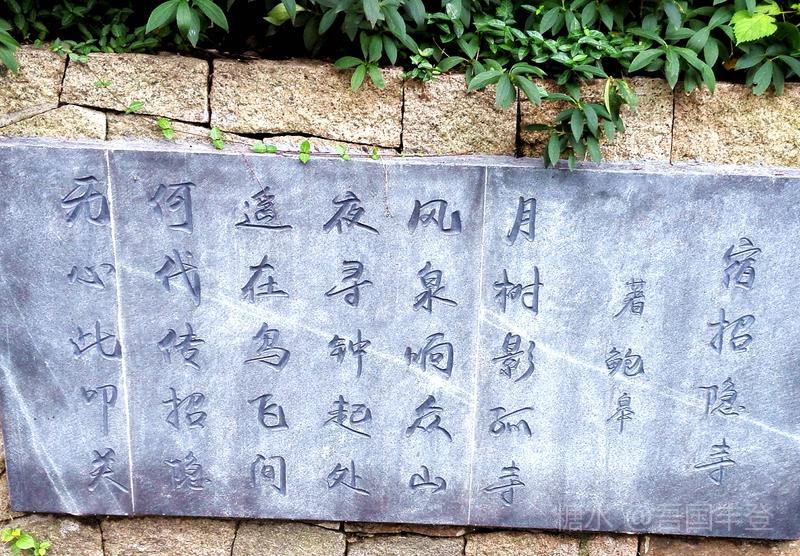 宿招隐寺
著鲍皋
月树影孤寺
风泉响众山
夜寻钟起处
遥在鸟飞间
何代传招隐
无心此叩关
糖水 @吾国